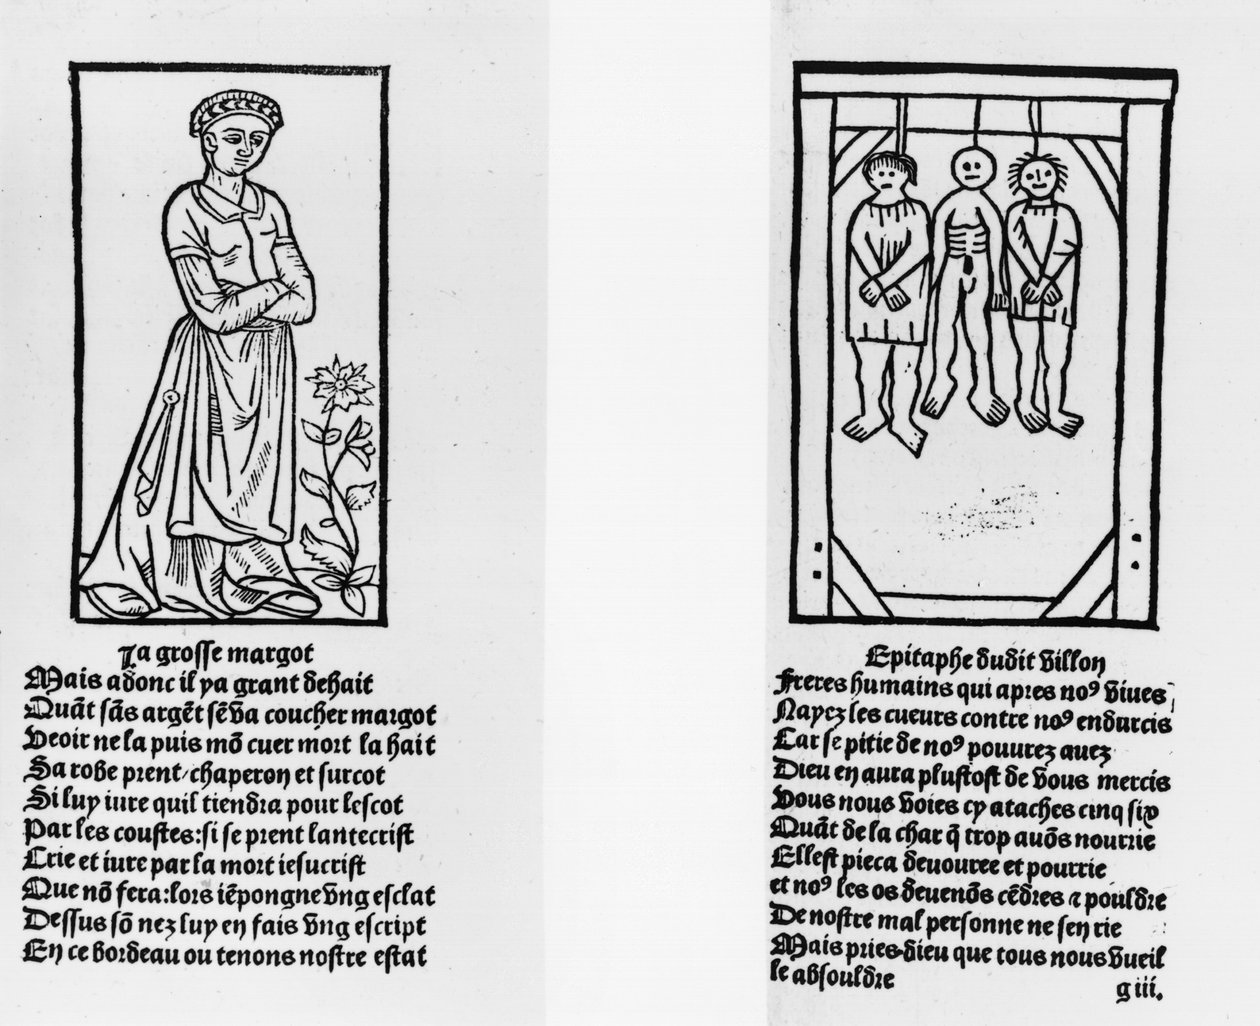 La grosse margot
Mais adonc il ya grant dehait
Quãt sãs argẽt sẽ va coucher margot
Veoir ne la puis mõ cuer mort la hait
Sa robe prent/chaperon et surcot
Si luy iure quil tiendra pour lescot
Par les coustes:si se prent lantecrist
Crie et iure par la mort iesucrist
Que nõ fera:lors iẽpongne vng esclat
Dessus sõ nez luy en fais vng escript
En ce bordeau ou tenons nostre estat
Epitaphe dudit villon
Freres humains qui apres noꝰ viues
Nayez les cueurs contre noꝰ endurcis
Car se pitie de noꝰ pouurez auez
Dieu en aura plustost de vous mercis
Vous nous voies cy ataches cinq six
Quãt de la char q̃ trop auõs nourrie
Ellest pieca deuouree et pourrie
et noꝰ les os deuenõs cẽdres ⁊ pouldre
De nostre mal personne ne sen rie
Mais pries dieu que tous nous vueil
le absouldre
g iii.